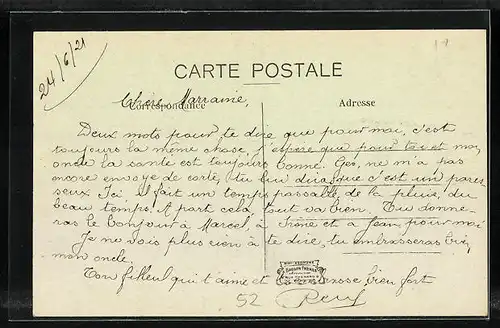 24/6/21
CARTE POSTALE
Chère Marraine,
Correspondance
Adresse
Deux mots pour te dire que pour moi, c'est
toujours la même chose, j'espère que pour toi et mon
oncle la santé est toujours bonne. Geo, ne m'a pas
encore envoyé de carte, tu lui diras que c'est un pares
seux. Ici il fait un temps passable, de la pluie, du
beau temps. A part cela, tout va bien. Tu donne-
ras le bonjour à Marcel, à Irène et à Jean, pour moi
Je ne vois plus rien à te dire, tu embrasseras bien
mon oncle.
Ton filleul qui t'aime et t'embrasse bien fort
52